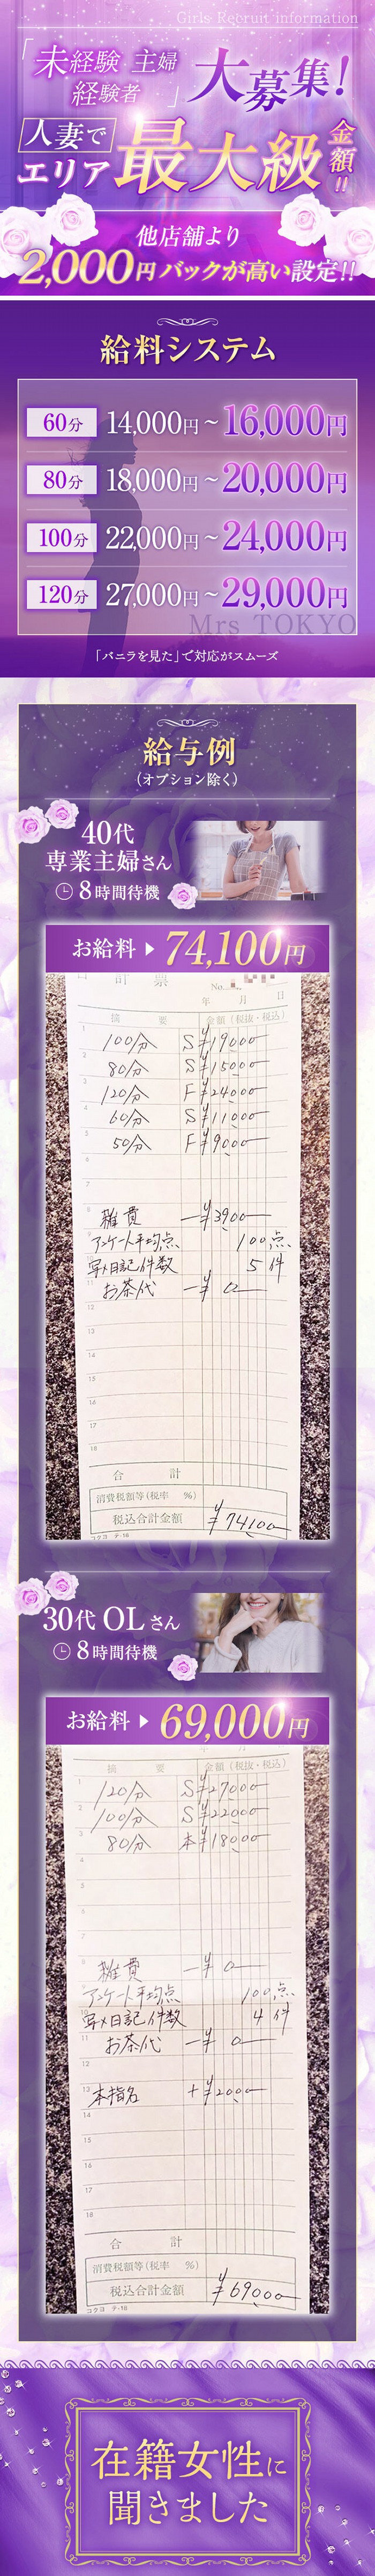 Girls Recruit information
「未経験・主婦
経験者」大募集!
人妻で
エリア最大級金額!!
他店舗より
2,000円バックが高い設定!!
給料システム
60分 14,000円~16,000円
80分 18,000円~20,000円
100分 22,000円~24,000円
120分 27,000円~29,000円
Mrs TOKYO
「バニラを見た」で対応がスムーズ
給与例
(オプション除く)
40代
専業主婦さん
8時間待機
お給料 74,100円
合 計 票
No.
年 月 日
摘 要 金額(税抜・税込)
1 100分 S ¥19000
2 80分 S ¥15000
3 120分 F ¥24000
4 60分 S ¥11000
5 50分 F ¥9000
6
7
8 雑費 -¥3900
9 アンケート平均点 100点
10 写メ日記件数 5件
11 お茶代 -¥0
12
13
14
15
16
17
18
合 計
消費税額等(税率 %)
税込合計金額 ¥74100
コクヨ テ-18
30代 OLさん
8時間待機
お給料 69,000円
摘 要 金額(税抜・税込)
1 120分 S ¥27000
2 100分 S ¥22000
3 80分 本 ¥18000
4
5
6
7
8 雑費 -¥0
9 アンケート平均点 100点
10 写メ日記件数 4件
11 お茶代 -¥0
12
13 本指名 +¥2000
14
15
16
17
18
合 計
消費税額等(税率 %)
税込合計金額 ¥69000
コクヨ テ-18
在籍女性に
聞きました